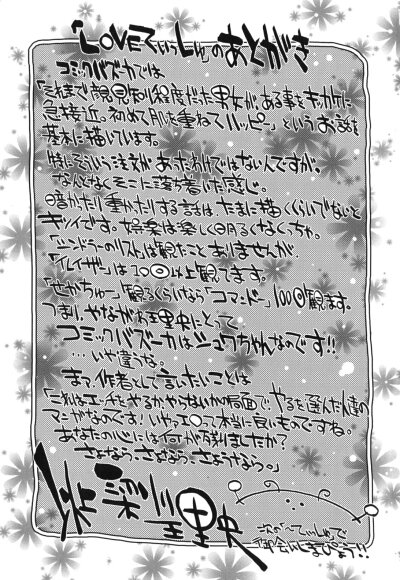 「LOVEてぃっしゅ」のあとがき
コミックバズーカでは
「それまで顔見知り程度だった男女が、ある事をキッカケに
急接近。初めて肌を重ねてハッピー」というお話を
基本に描いています。
特にそういう注文があったわけではないんですが。
なんとなくそこに落ち着いた感じ。
暗かったり重かったりする話はたまに描くくらいでないと
キツイです。娯楽は楽しく明るくなくっちゃ。
「シンドラーのリスト」は観たことありませんが、
「イレイザー」は100回以上観てます。
「せかちゅー」観るくらいなら「コマンドー」100回観ます。
つまり、やながわ理央にとって
コミックバズーカはシュワちゃんなのです!!
…いや違うな。
まァ、作者として言いたいことは
「これはエッチをやるかやらないかの局面で、やるを選んだ人達の
マンガなのです!いやァエ〇って本当に良いものですね。
あなたの心には何が残りましたか?
さよなら、さよなら、さようなら。」
理央
次の「〜てぃっしゅ」で
御会いしまひょう!!